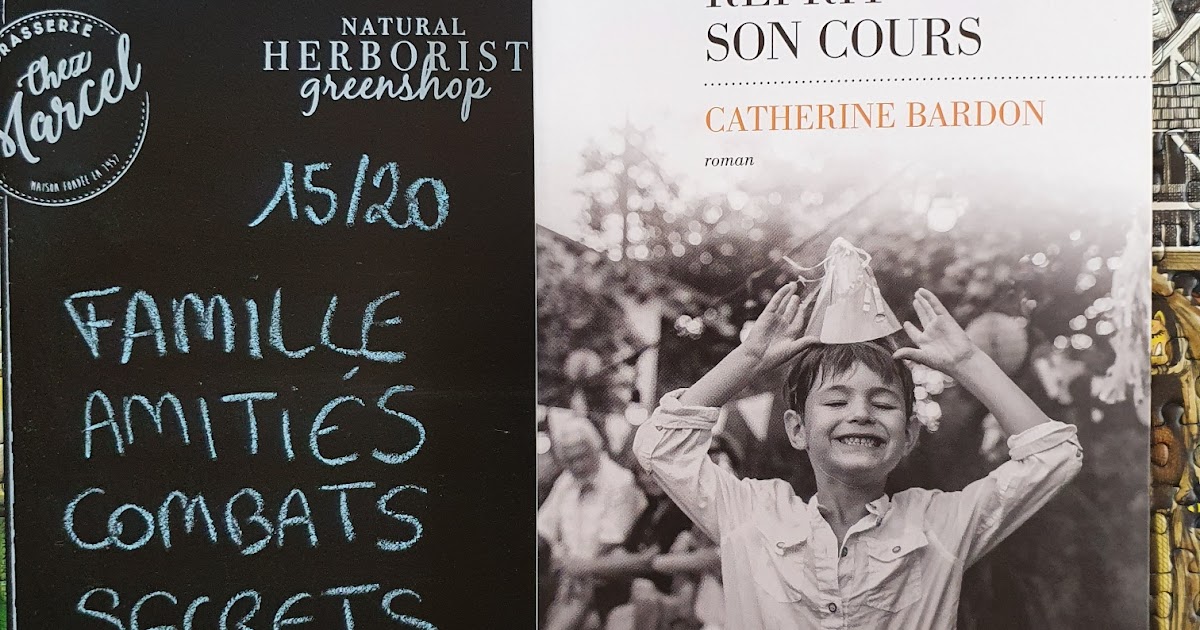 BRASSERIE
Chez
Marcel
MAISON FONDÉE EN 1957
NATURAL
HERBORIST
greenshop
15/20
FAMILLE
AMITIÉS
COMBATS
SECRETS
REPRIT
SON COURS
CATHERINE BARDON
roman